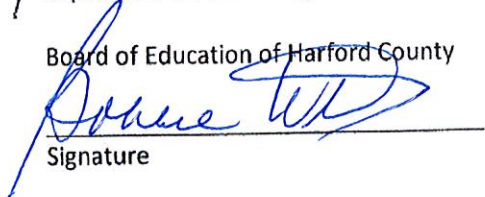 Board of Education of Harford County
Signature